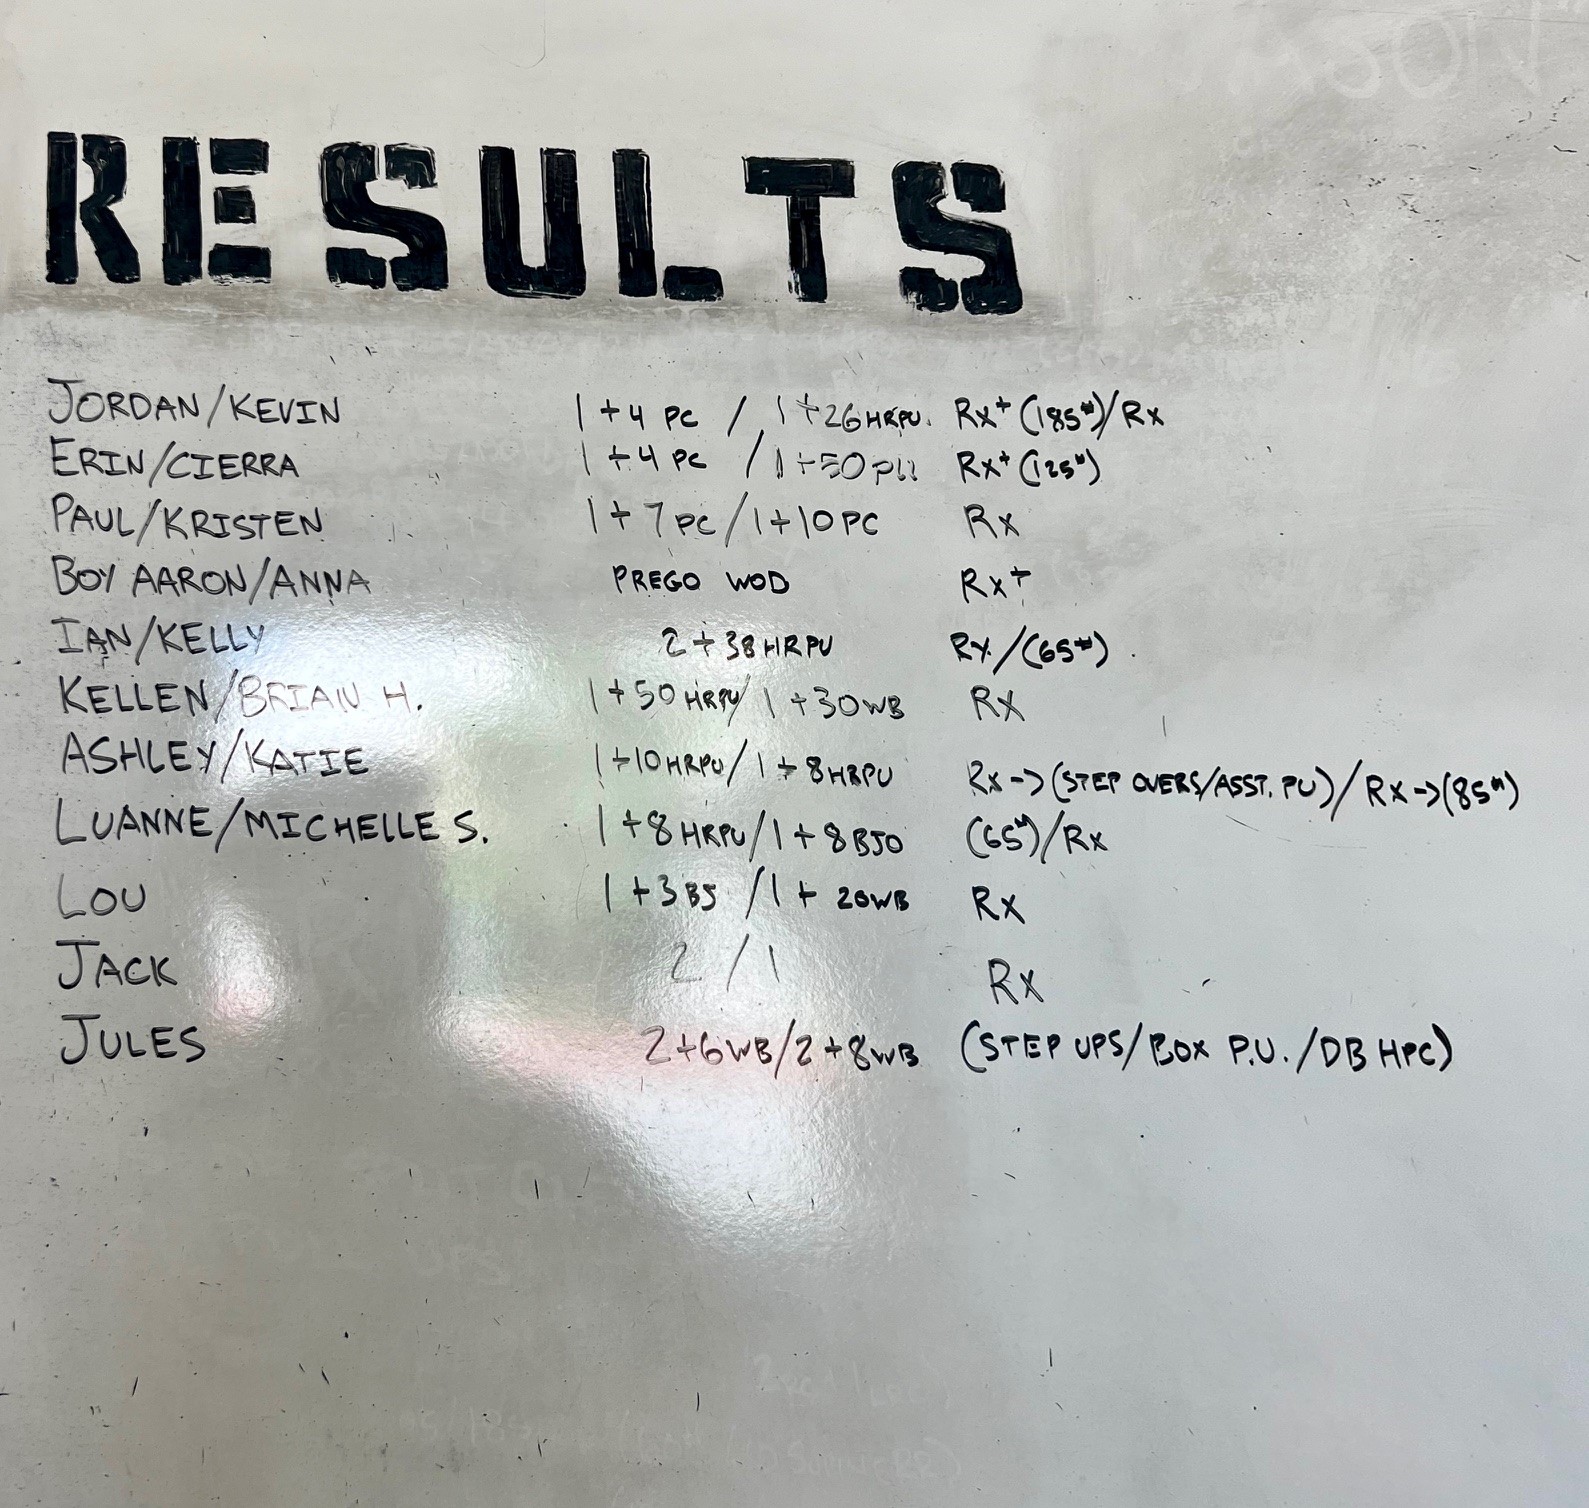 RESULTS
JORDAN/KEVIN 1+4 PC / 1+26 HRPU. Rx+ (185#)/Rx
ERIN/CIERRA 1+4 PC / 1+50 Rx+ (125#)
PAUL/KRISTEN 1+7 PC/1+10 PC Rx
BOY AARON/ANNA PREGO WOD Rx+
IAN/KELLY 2+38 HRPU Rx/(65#)
KELLEN/BRIAN H. 1+50 HRPU/1+30 WB Rx
ASHLEY/KATIE 1+10 HRPU/1+8 HRPU Rx->(STEP OVERS/ASST. PU)/Rx->(85#)
LUANNE/MICHELLE S. 1+8 HRPU/1+8 BJO (65#)/Rx
LOU 1+3 BJ /1+ 20 WB Rx
JACK 2/1 Rx
JULES 2+6 WB/2+8 WB (STEP UPS/BOX P.U./DB HPC)